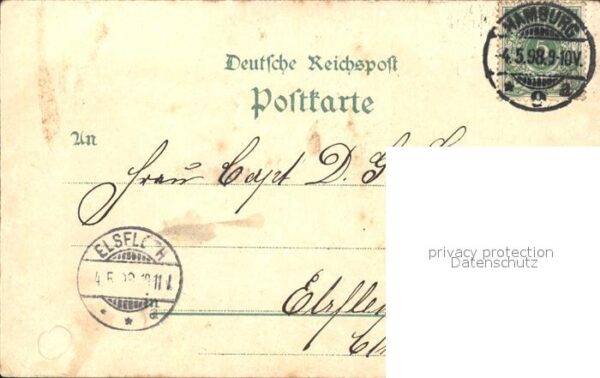 HAMBURG
4.5.98.9-10V.
Deutsche Reichspost
Postkarte
An
Frau Capt D.
privacy protection
Datenschutz
ELSFLETH
4.5.98
11
in
Elsfle